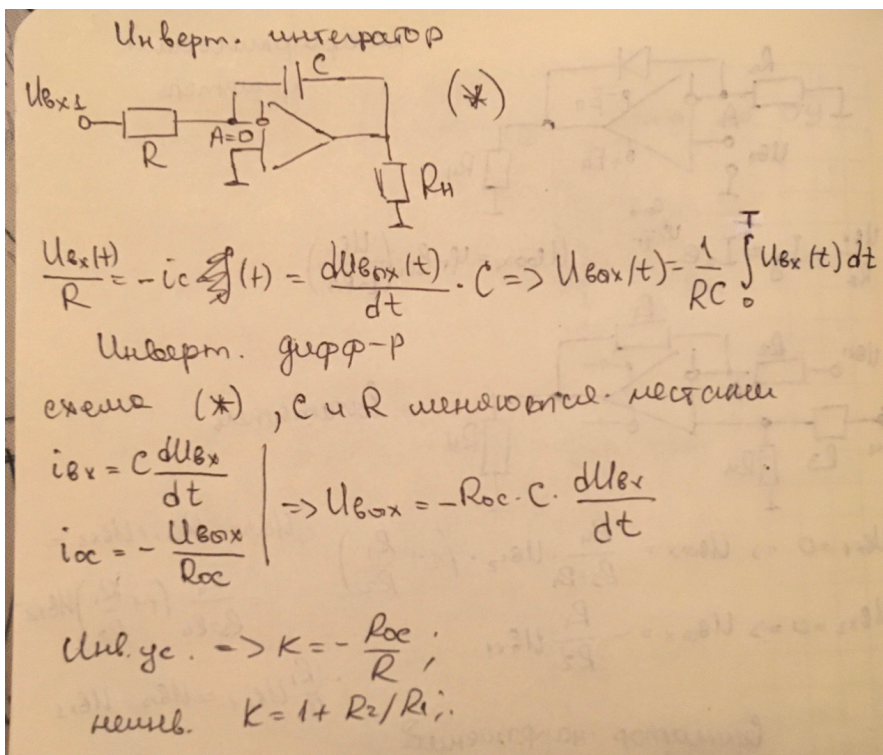 Инверт. интегратор
C
(*)
Uвх1
A=0
R
Rн
Uвх(t)/R = -ic (t) = dUвых(t)/dt · C => Uвых(t) = 1/RC ∫₀ᵀ Uвх(t) dt
Инверт. дифф-р
схема (*), C и R меняются местами
iвх = C dUвх/dt
iос = - Uвых/Rос
=> Uвых = -Rос · C · dUвх/dt
Инв. ус. -> K = - Rос/R ;
неинв. K = 1 + R2/R1;.